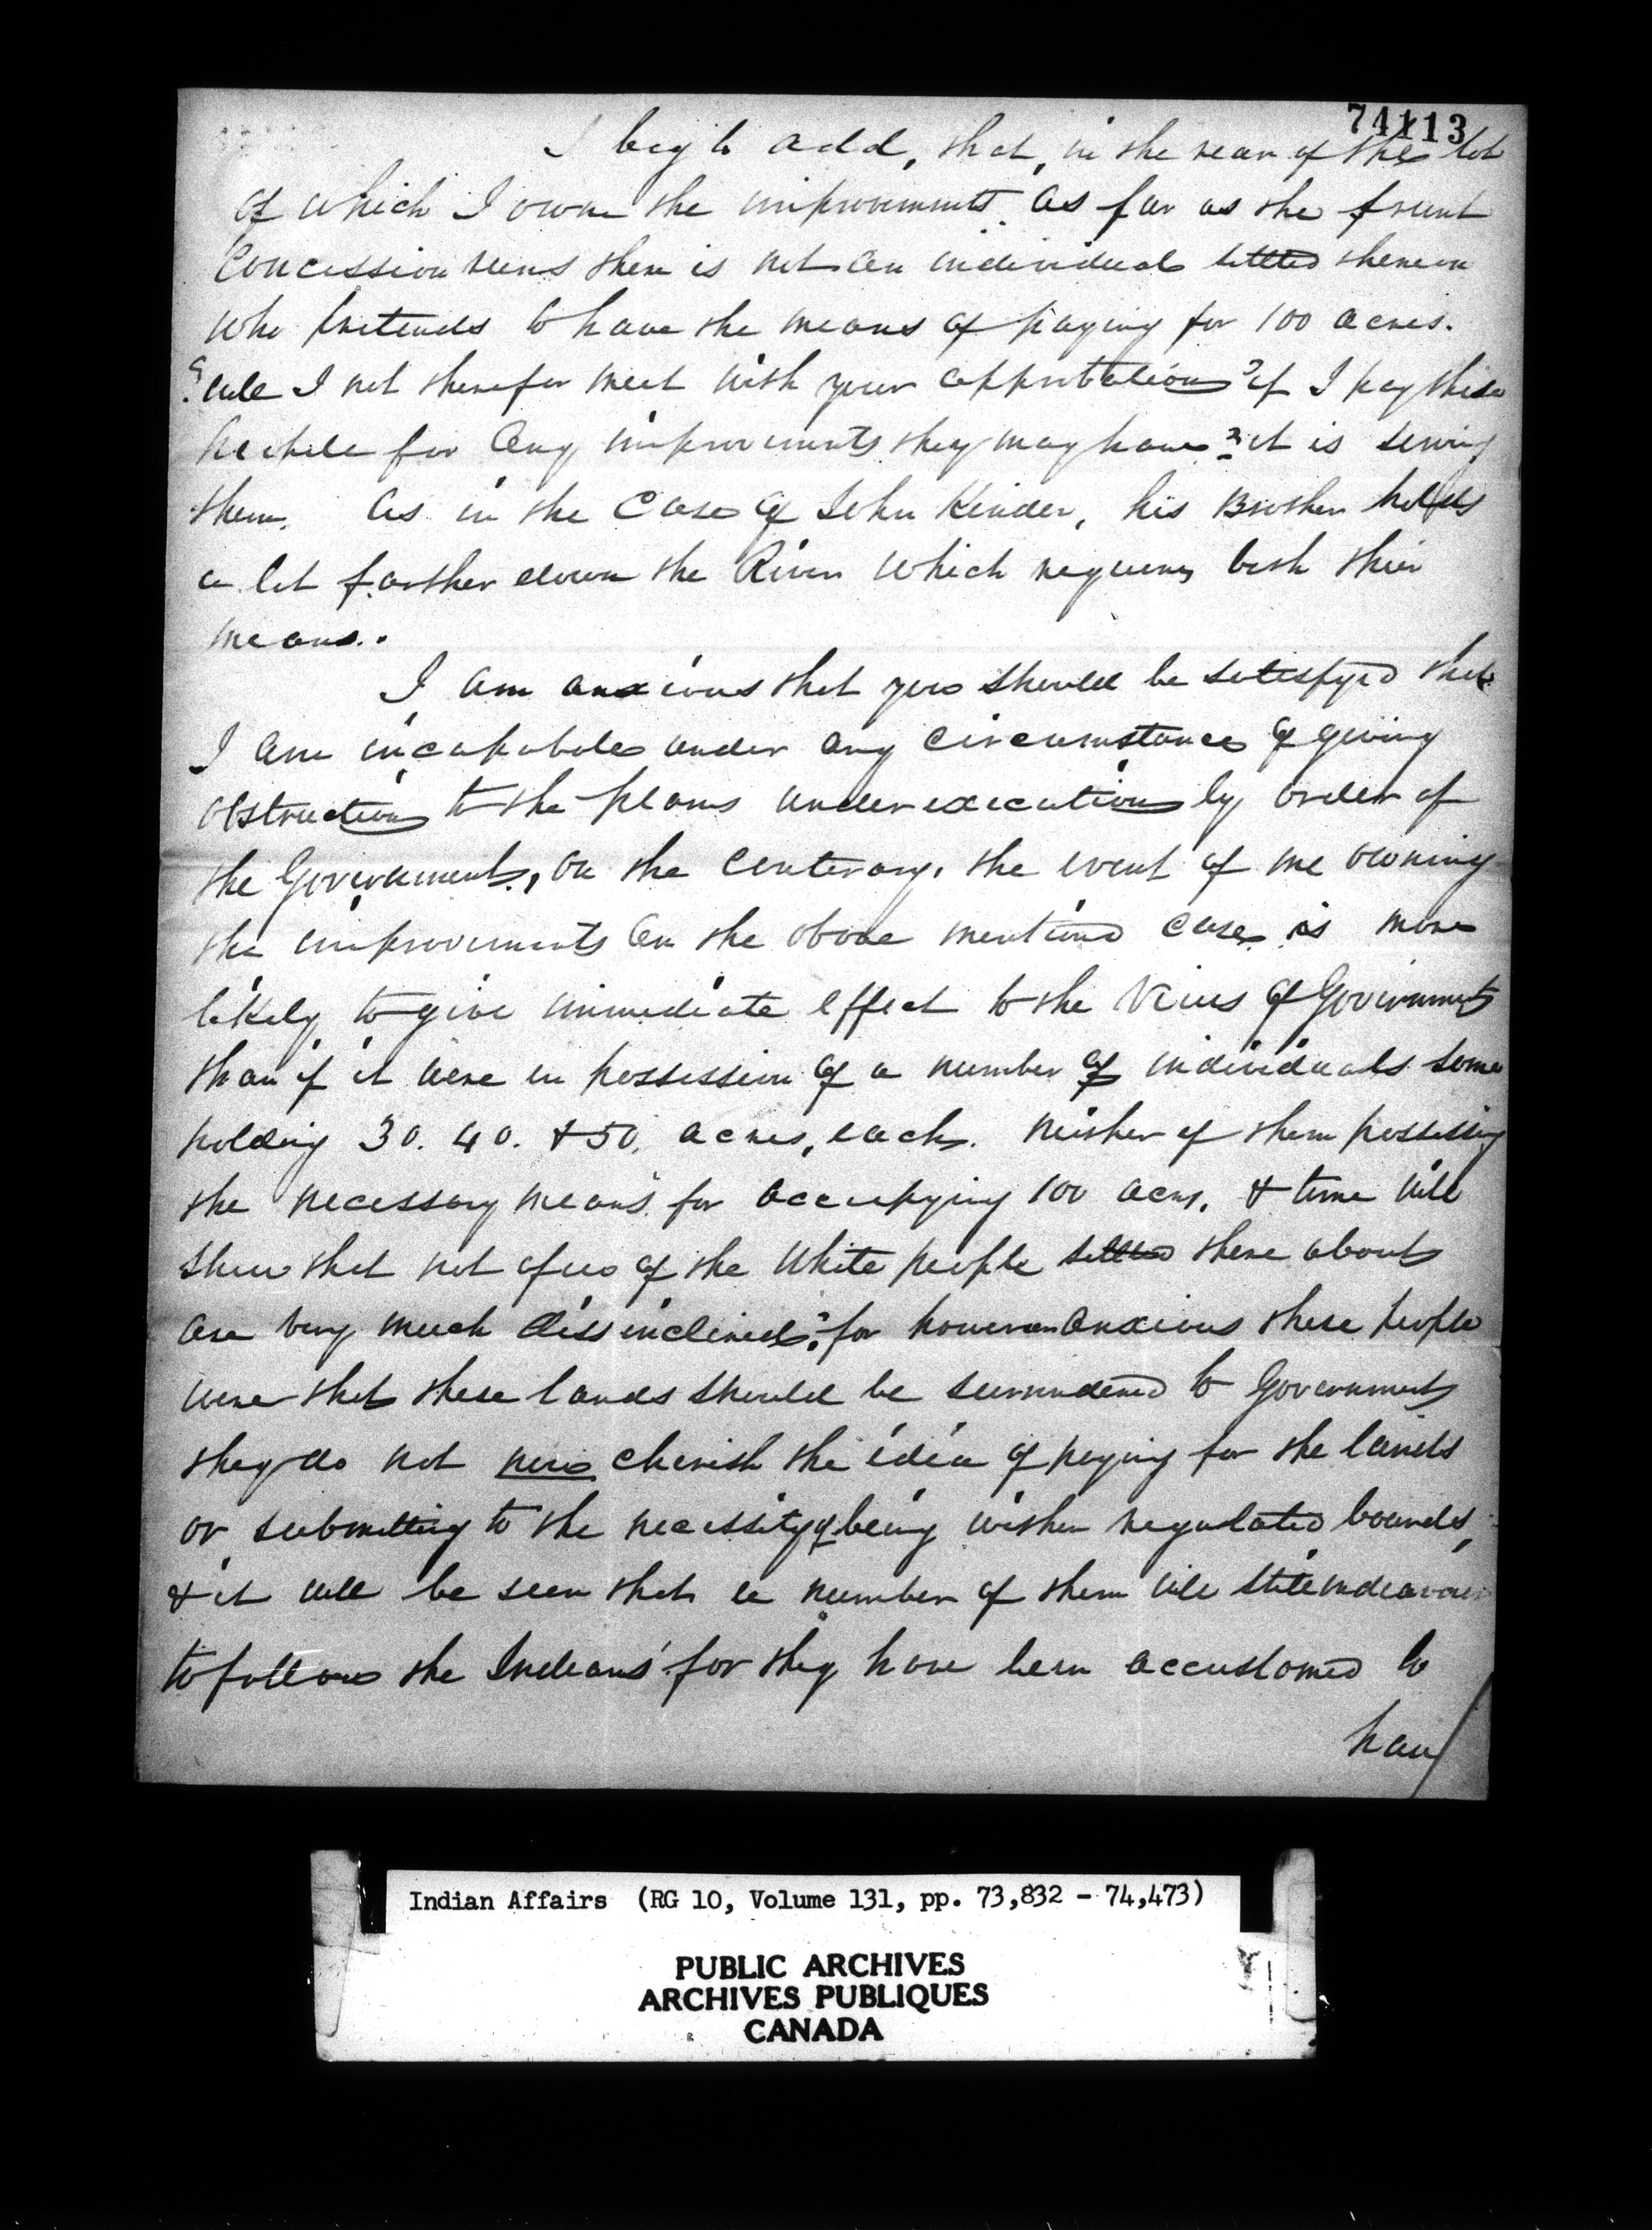 74113
I beg to add, that, in the rear of the lot
of which I own the improvements as far as the front
Concession runs there is not an individual settled thereon
who pretends to have the means of paying for 100 acres.
Will I not therefor meet with your approbation if I pay these
people for any improvements they may have? it is serving
them. As in the case of John Kinder, his Brother holds
a lot farther down the River which requires both their
means.
I am anxious that you should be satisfyed that
I am incapable under any circumstance of giving
obstruction to the plans under execution by order of
the Government, on the contrary, the event of me owning
the improvements in the above mentiond case is more
likely to give immediate effect to the views of Government
than if it were in possession of a number of individuals some
holding 30. 40. & 50. acres, each. neither of them possessing
the necessary means for occupying 100 acres, & time will
shew that not a few of the White people settled there abouts
are very much dissinclined: for however anxious these people
were that these lands should be surrendered to Government
they do not now cherish the idea of paying for the lands
or submitting to the necessity of being within regulated bounds,
& it will be seen that a number of them will still endeavour
to follow the Indians for they have been accustomed to
have/
Indian Affairs (RG 10, Volume 131, pp. 73,832 - 74,473)
PUBLIC ARCHIVES
ARCHIVES PUBLIQUES
CANADA